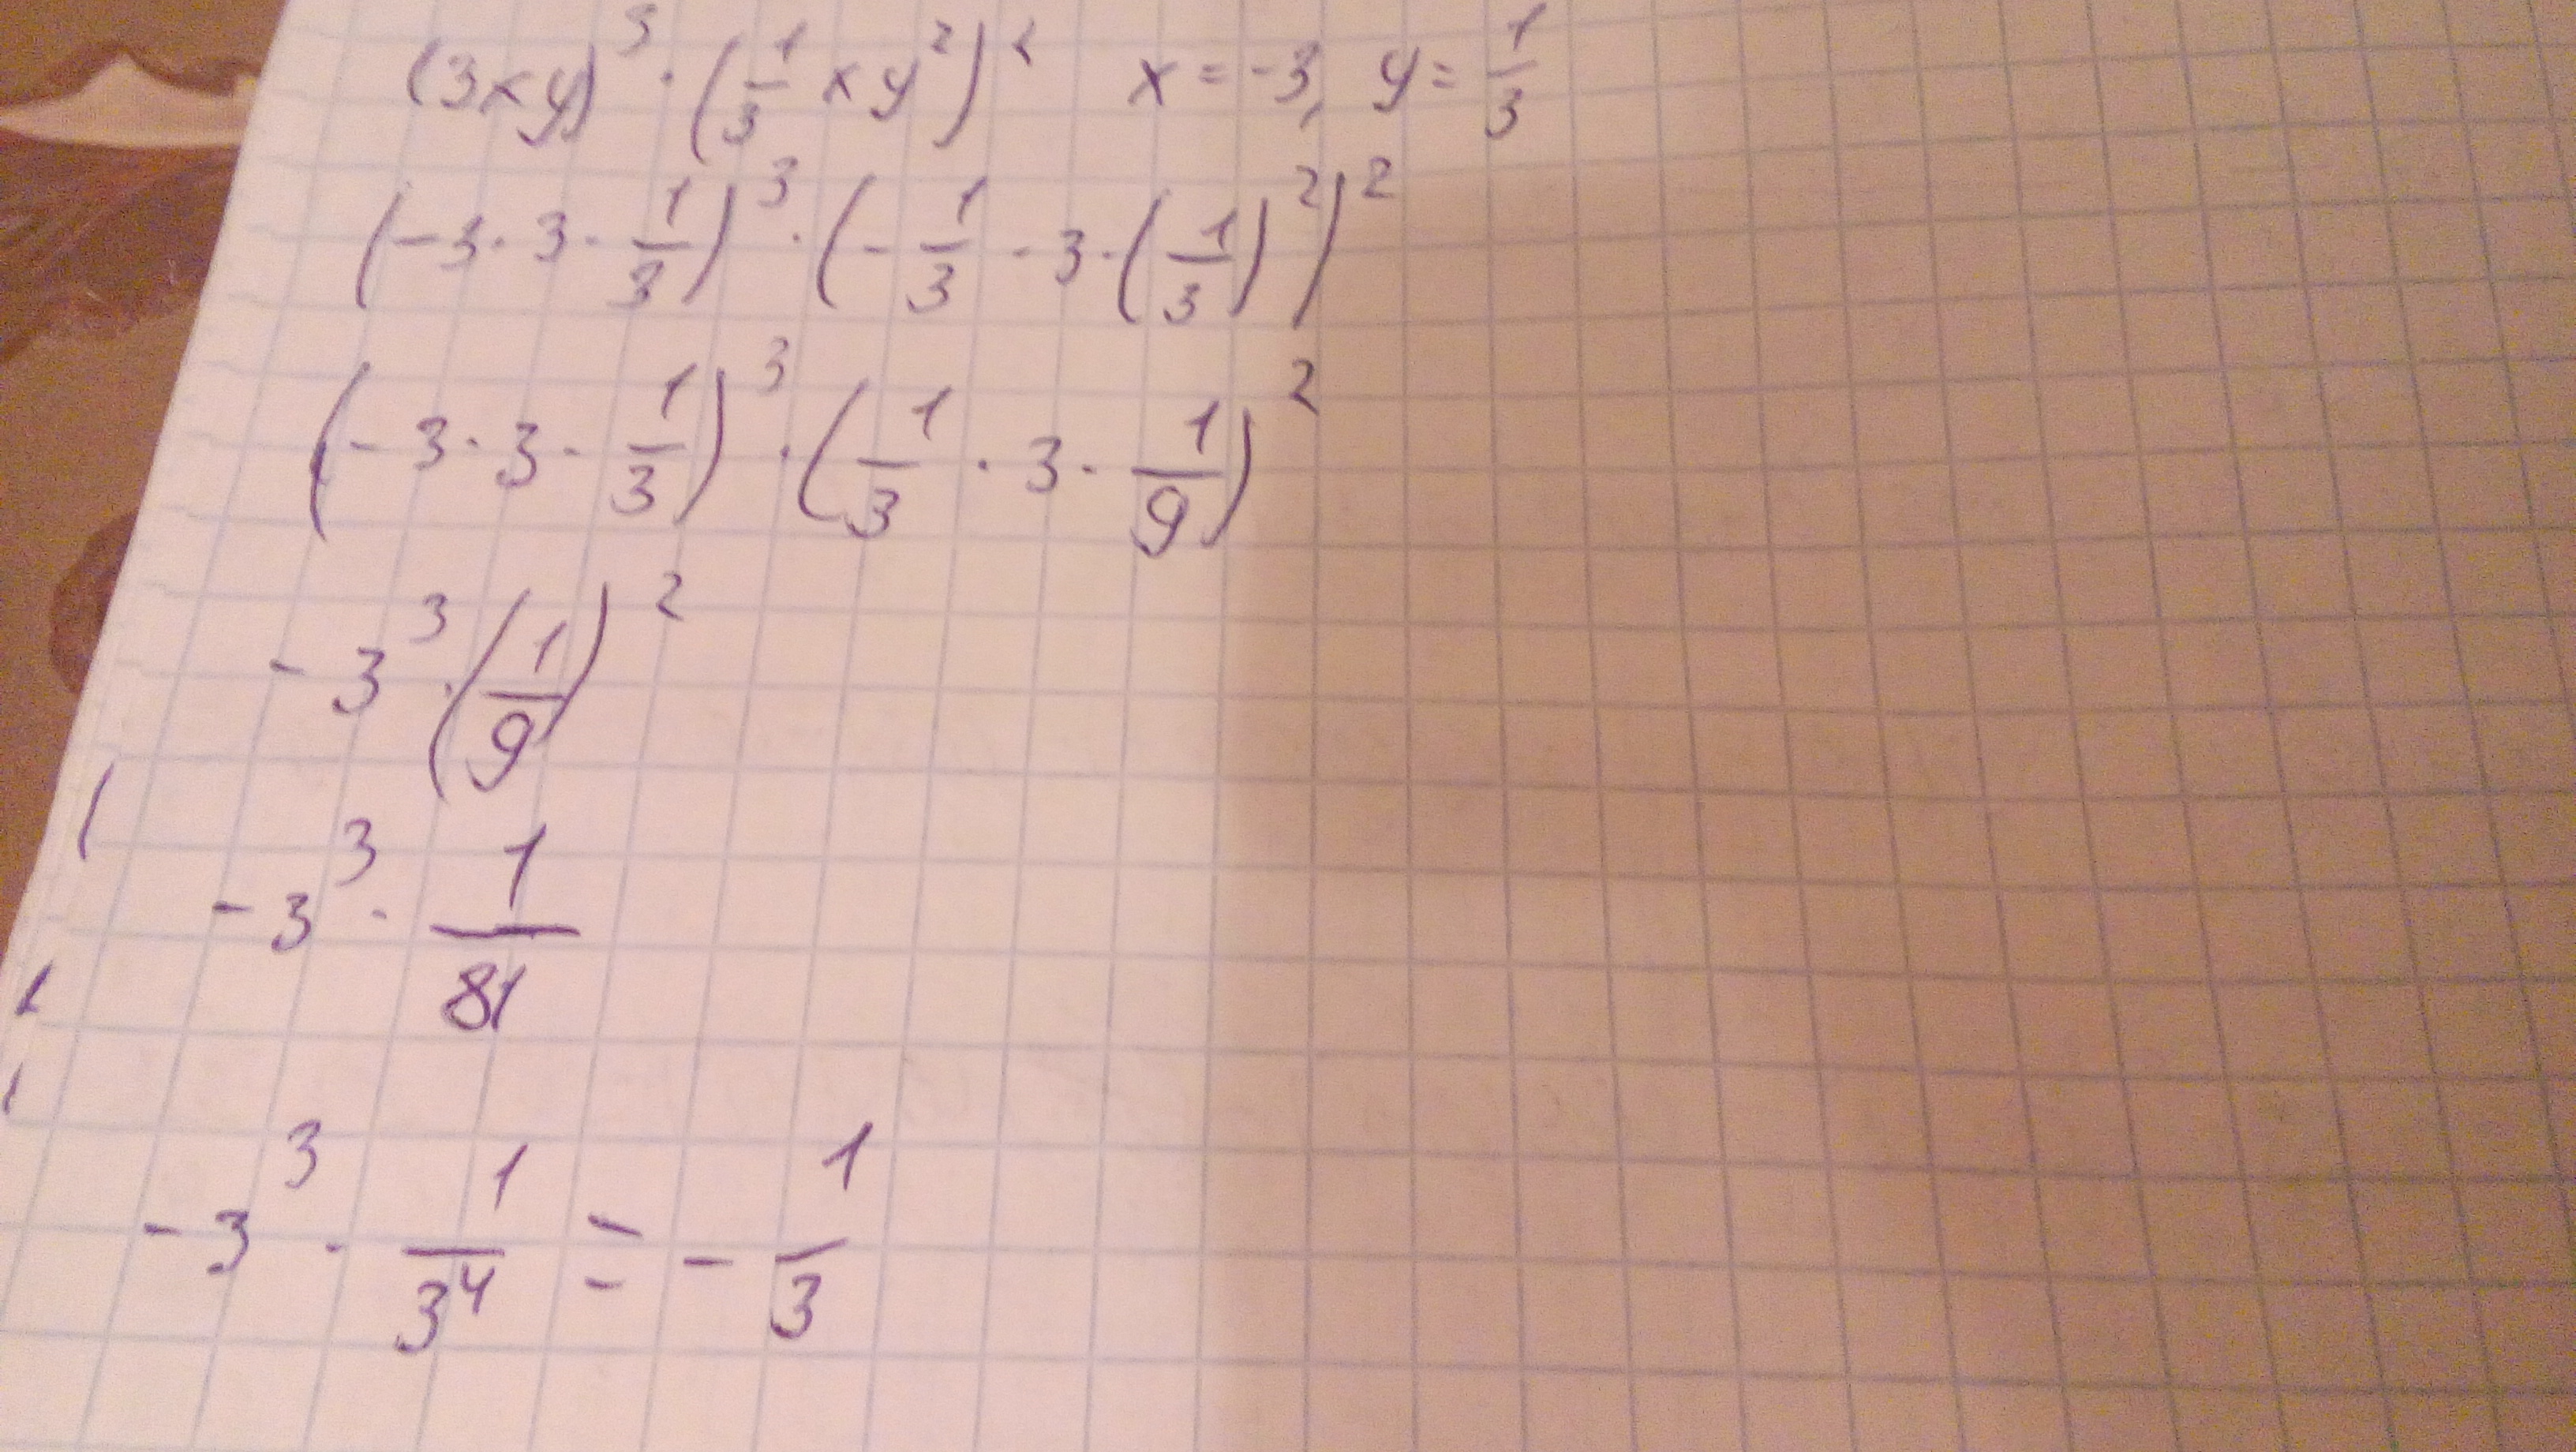 (3xy)³ · (1/3 xy²)² x = -3, y = 1/3
(-3 · 3 · 1/3)³ · (-1/3 · 3 · (1/3)²)²
(-3 · 3 · 1/3)³ · (1/3 · 3 · 1/9)²
-3³ · (1/9)²
-3³ · 1/81
-3³ · 1/3⁴ = -1/3